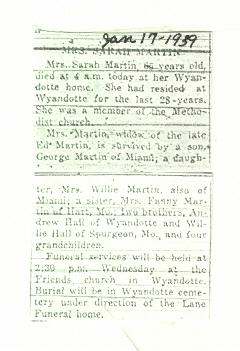 Jan 17-1939
MRS. SARAH MARTIN
Mrs. Sarah Martin, 65 years old,
died at 4 a.m. today at her Wyan-
dotte home. She had resided at
Wyandotte for the last 28 years.
She was a member of the Metho-
dist church.
Mrs. Martin, widow of the late
Ed Martin, is survived by a son,
George Martin of Miami; a daugh-
ter, Mrs. Willie Martin, also of
Miami; a sister, Mrs. Fanny Mar-
tin of Hart, Mo.; two brothers, An-
drew Hall of Wyandotte and Wil-
lie Hall of Spurgeon, Mo., and four
grandchildren.
Funeral services will be held at
2:30 p.m. Wednesday at the
Friends church in Wyandotte.
Burial will be in Wyandotte ceme-
tery under direction of the Lane
Funeral home.